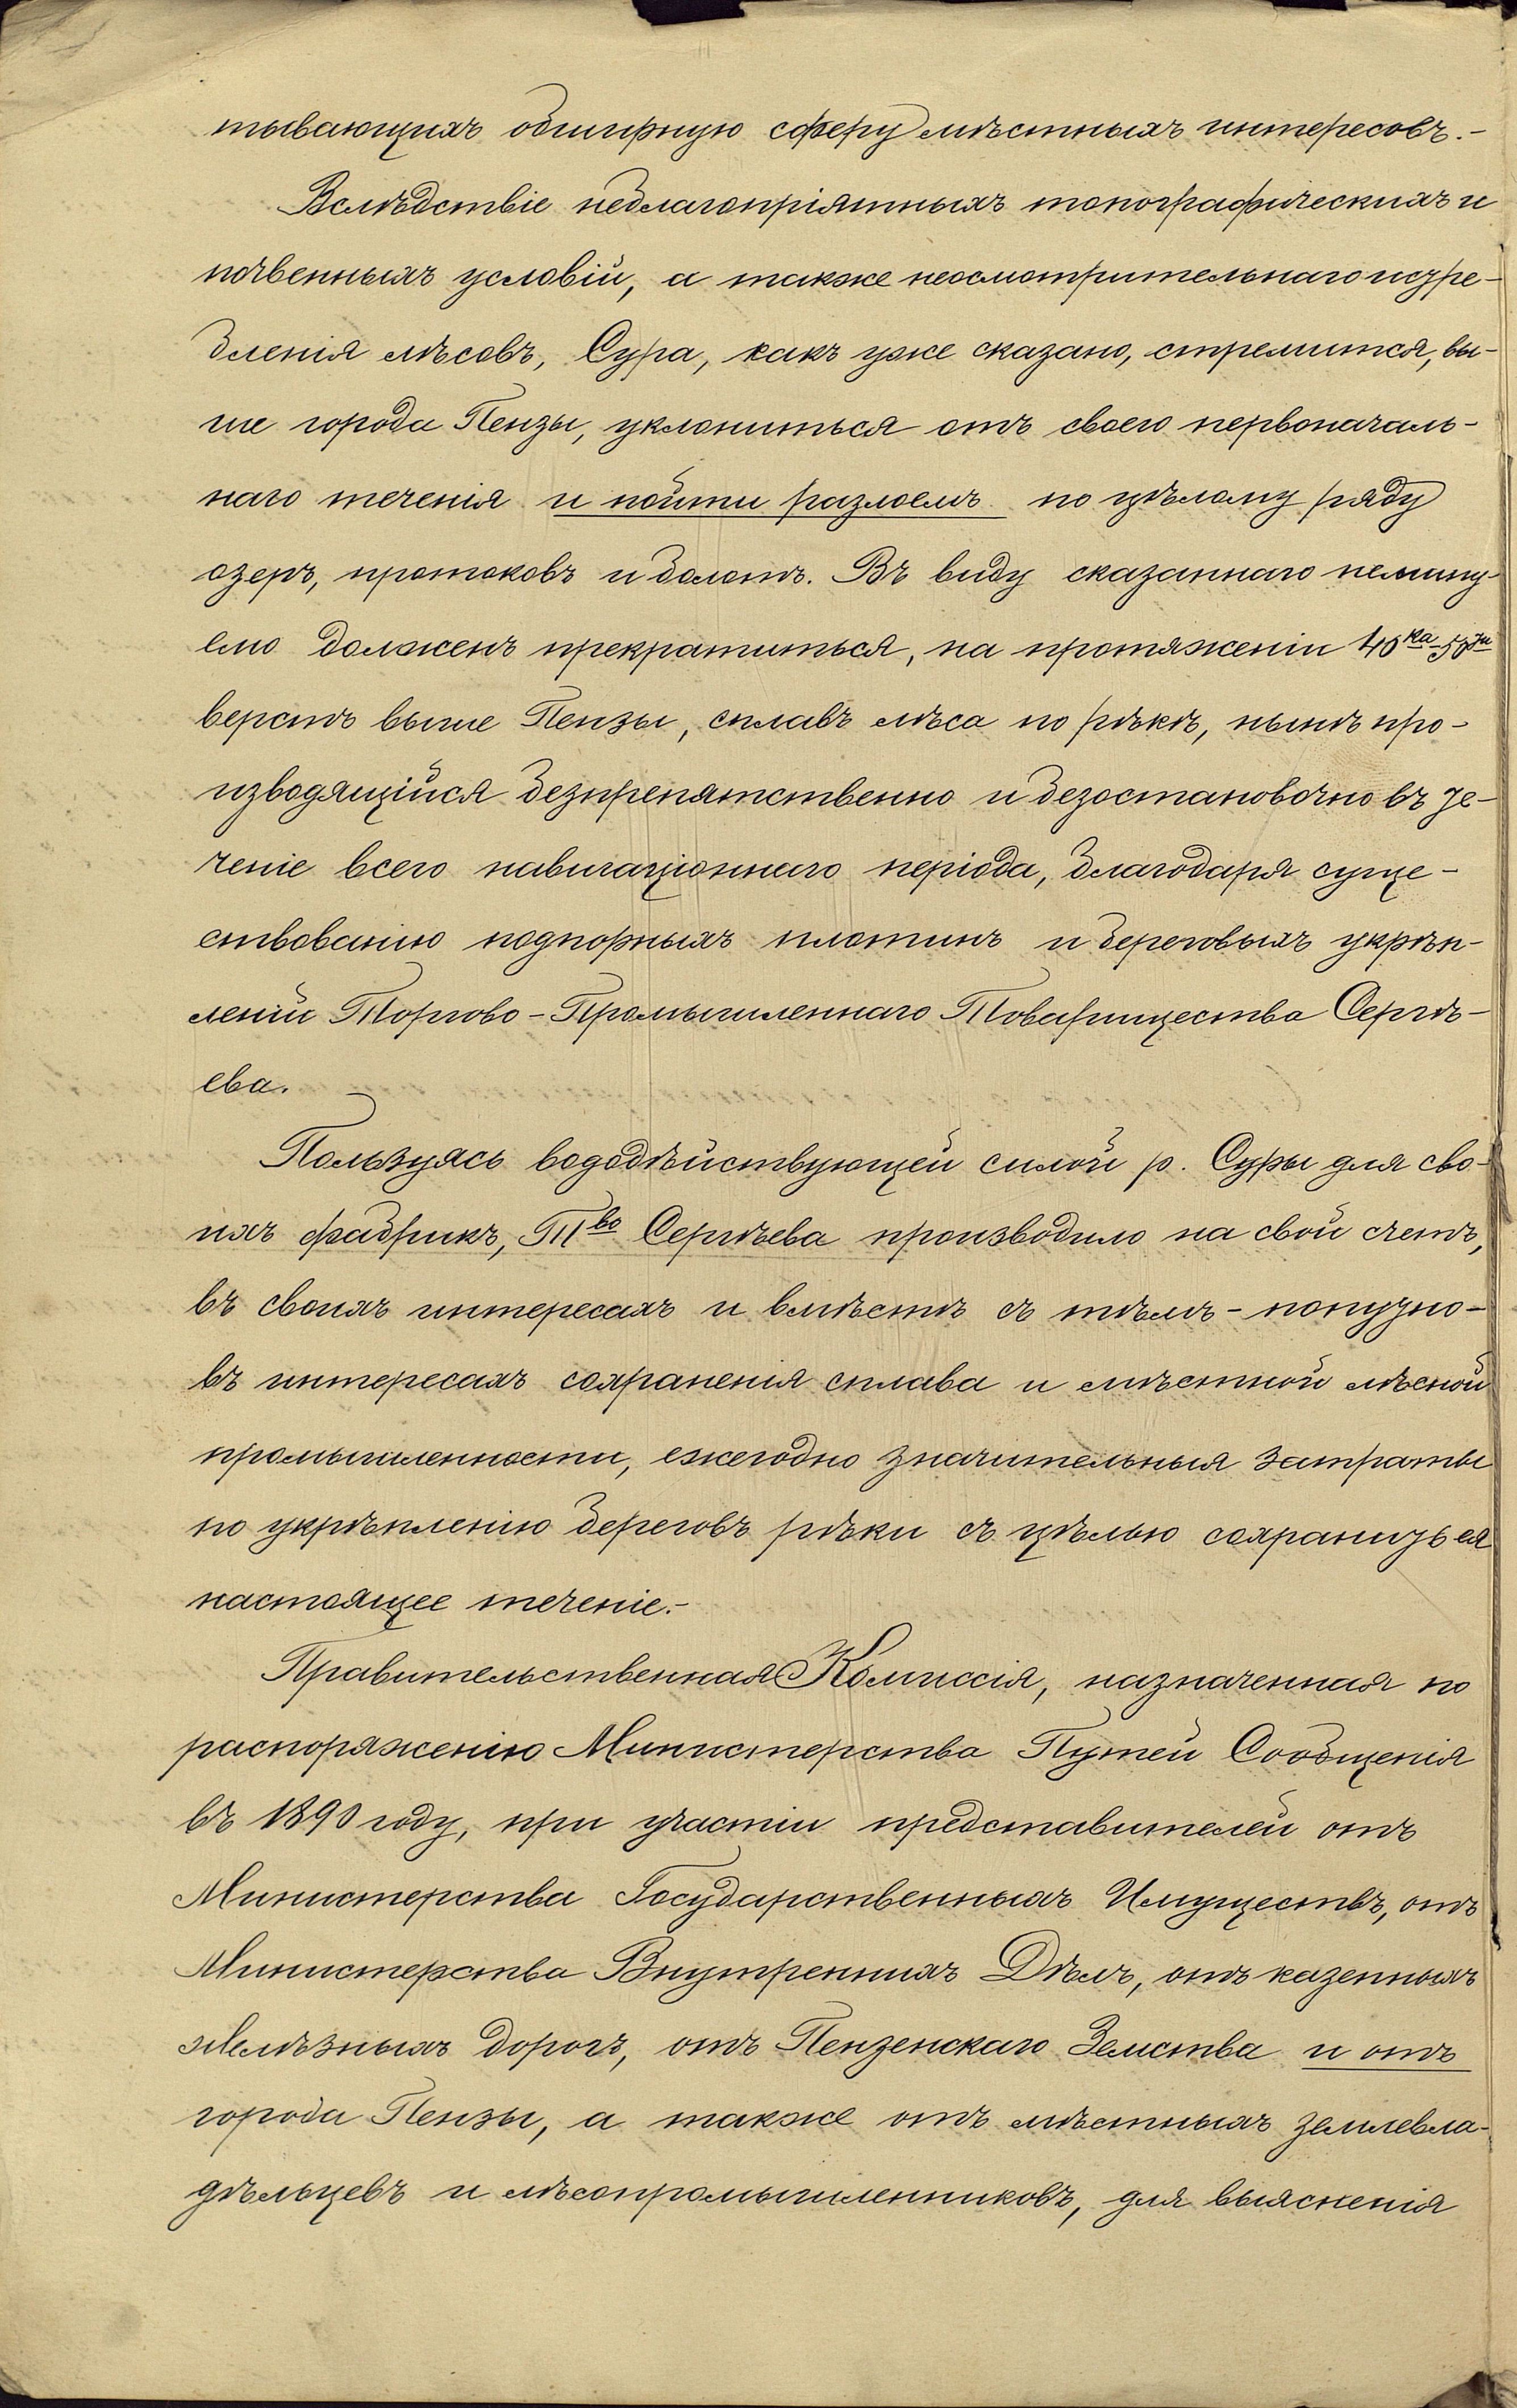 тывающихъ обширную сферу мѣстныхъ интересовъ.-
Вслѣдствіе неблагопріятныхъ топографическихъ и
почвенныхъ условій, а также неосмотрительнаго истре-
бленія лѣсовъ, Сура, какъ уже сказано, стремится, вы-
ше города Пензы, уклониться отъ своего первоначаль-
наго теченія и пойти разломъ по цѣлому ряду
озеръ, протоковъ и болотъ. Въ виду сказаннаго немину-
емо долженъ прекратиться, на протяженіи 40ка-50ти
верстъ выше Пензы, сплавъ лѣса по рѣкѣ, нынѣ про-
изводящійся безпрепятственно и безостановочно въ те-
ченіе всего навигаціоннаго періода, благодаря суще-
ствованію подпорныхъ плотинъ и береговыхъ укрѣп-
леній Торгово-Промышленнаго Товарищества Сергѣ-
ева.
Пользуясь вододѣйствующей силой р. Суры для сво-
ихъ фабрикъ, Тво Сергѣева производило на свой счетъ,
въ своихъ интересахъ и вмѣстѣ съ тѣмъ - попутно -
въ интересахъ сохраненія сплава и мѣстной лѣсной
промышленности, ежегодно значительныя затраты
по укрѣпленію береговъ рѣки съ цѣлью сохранить ея
настоящее теченіе.-
Правительственная Комиссія, назначенная по
распоряженію Министерства Путей Сообщенія
въ 1890 году, при участіи представителей отъ
Министерства Государственныхъ Имуществъ, отъ
Министерства Внутреннихъ Дѣлъ, отъ казенныхъ
желѣзныхъ дорогъ, отъ Пензенскаго Земства и отъ
города Пензы, а также отъ мѣстныхъ землевла-
дѣльцевъ и лѣсопромышленниковъ, для выясненія